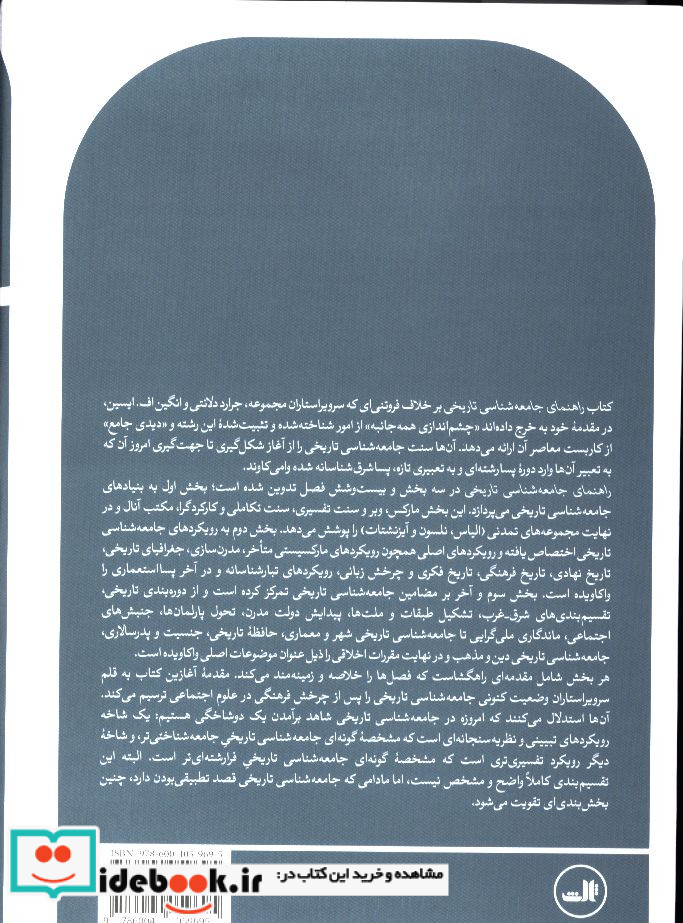 کتاب راهنمای جامعه‌شناسی تاریخی بر خلاف فروتنی‌ای که سرویراستاران مجموعه، جرارد دلانتی و انگین اف. ایسین،
در مقدمهٔ خود به خرج داده‌اند «چشم‌اندازی همه‌جانبه» از امور شناخته‌شده و تثبیت‌شدهٔ این رشته و «دیدی جامع»
از کاربست معاصر آن ارائه می‌دهد. آن‌ها سنت جامعه‌شناسی تاریخی را از آغاز شکل‌گیری تا جهت‌گیری امروز آن که
به تعبیر آن‌ها وارد دورهٔ پسارشته‌ای و به تعبیری تازه، پساشرق‌شناسانه شده وامی‌کاوند.
راهنمای جامعه‌شناسی تاریخی در سه بخش و بیست‌وشش فصل تدوین شده است؛ بخش اول به بنیادهای
جامعه‌شناسی تاریخی می‌پردازد. این بخش مارکس، وبر و سنت تفسیری، سنت تکاملی و کارکردگرا، مکتب آنال و در
نهایت مجموعه‌های تمدنی (الیاس، نلسون و آیزنشتات) را پوشش می‌دهد. بخش دوم به رویکردهای جامعه‌شناسی
تاریخی اختصاص یافته و رویکردهای اصلی همچون رویکردهای مارکسیستی متأخر، مدرن‌سازی، جغرافیای تاریخی،
تاریخ نهادی، تاریخ فرهنگی، تاریخ فکری و چرخش زبانی، رویکردهای تبارشناسانه و در آخر پسااستعماری را
واکاویده است. بخش سوم و آخر بر مضامین جامعه‌شناسی تاریخی تمرکز کرده است و از دوره‌بندی تاریخی،
تقسیم‌بندی‌های شرق-غرب، تشکیل طبقات و ملت‌ها، پیدایش دولت مدرن، تحول پارلمان‌ها، جنبش‌های
اجتماعی، ماندگاری ملی‌گرایی تا جامعه‌شناسی تاریخی شهر و معماری، حافظهٔ تاریخی، جنسیت و پدرسالاری،
جامعه‌شناسی تاریخی دین و مذهب و در نهایت مقررات اخلاقی را ذیل عنوان موضوعات اصلی واکاویده است.
هر بخش شامل مقدمه‌ای راهگشاست که فصل‌ها را خلاصه و زمینه‌مند می‌کند. مقدمهٔ آغازین کتاب به قلم
سرویراستاران وضعیت کنونی جامعه‌شناسی تاریخی را پس از چرخش فرهنگی در علوم اجتماعی ترسیم می‌کند.
آن‌ها استدلال می‌کنند که امروزه در جامعه‌شناسی تاریخی شاهد برآمدن یک دوشاخگی هستیم؛ یک شاخه
رویکردهای تبیینی و نظریه‌سنجانه‌ای است که مشخصهٔ گونه‌ای جامعه‌شناسی تاریخیِ جامعه‌شناختی‌تر، و شاخهٔ
دیگر رویکرد تفسیری‌تری است که مشخصهٔ گونه‌ای جامعه‌شناسی تاریخیِ فرارشته‌ای‌تر است. البته این
تقسیم‌بندی کاملاً واضح و مشخص نیست، اما مادامی که جامعه‌شناسی تاریخی قصد تطبیقی‌بودن دارد، چنین
بخش‌بندی‌ای تقویت می‌شود.
ISBN 978-600-405-969-5
idebook.ir
مشاهده و خرید این کتاب در:
ثالث